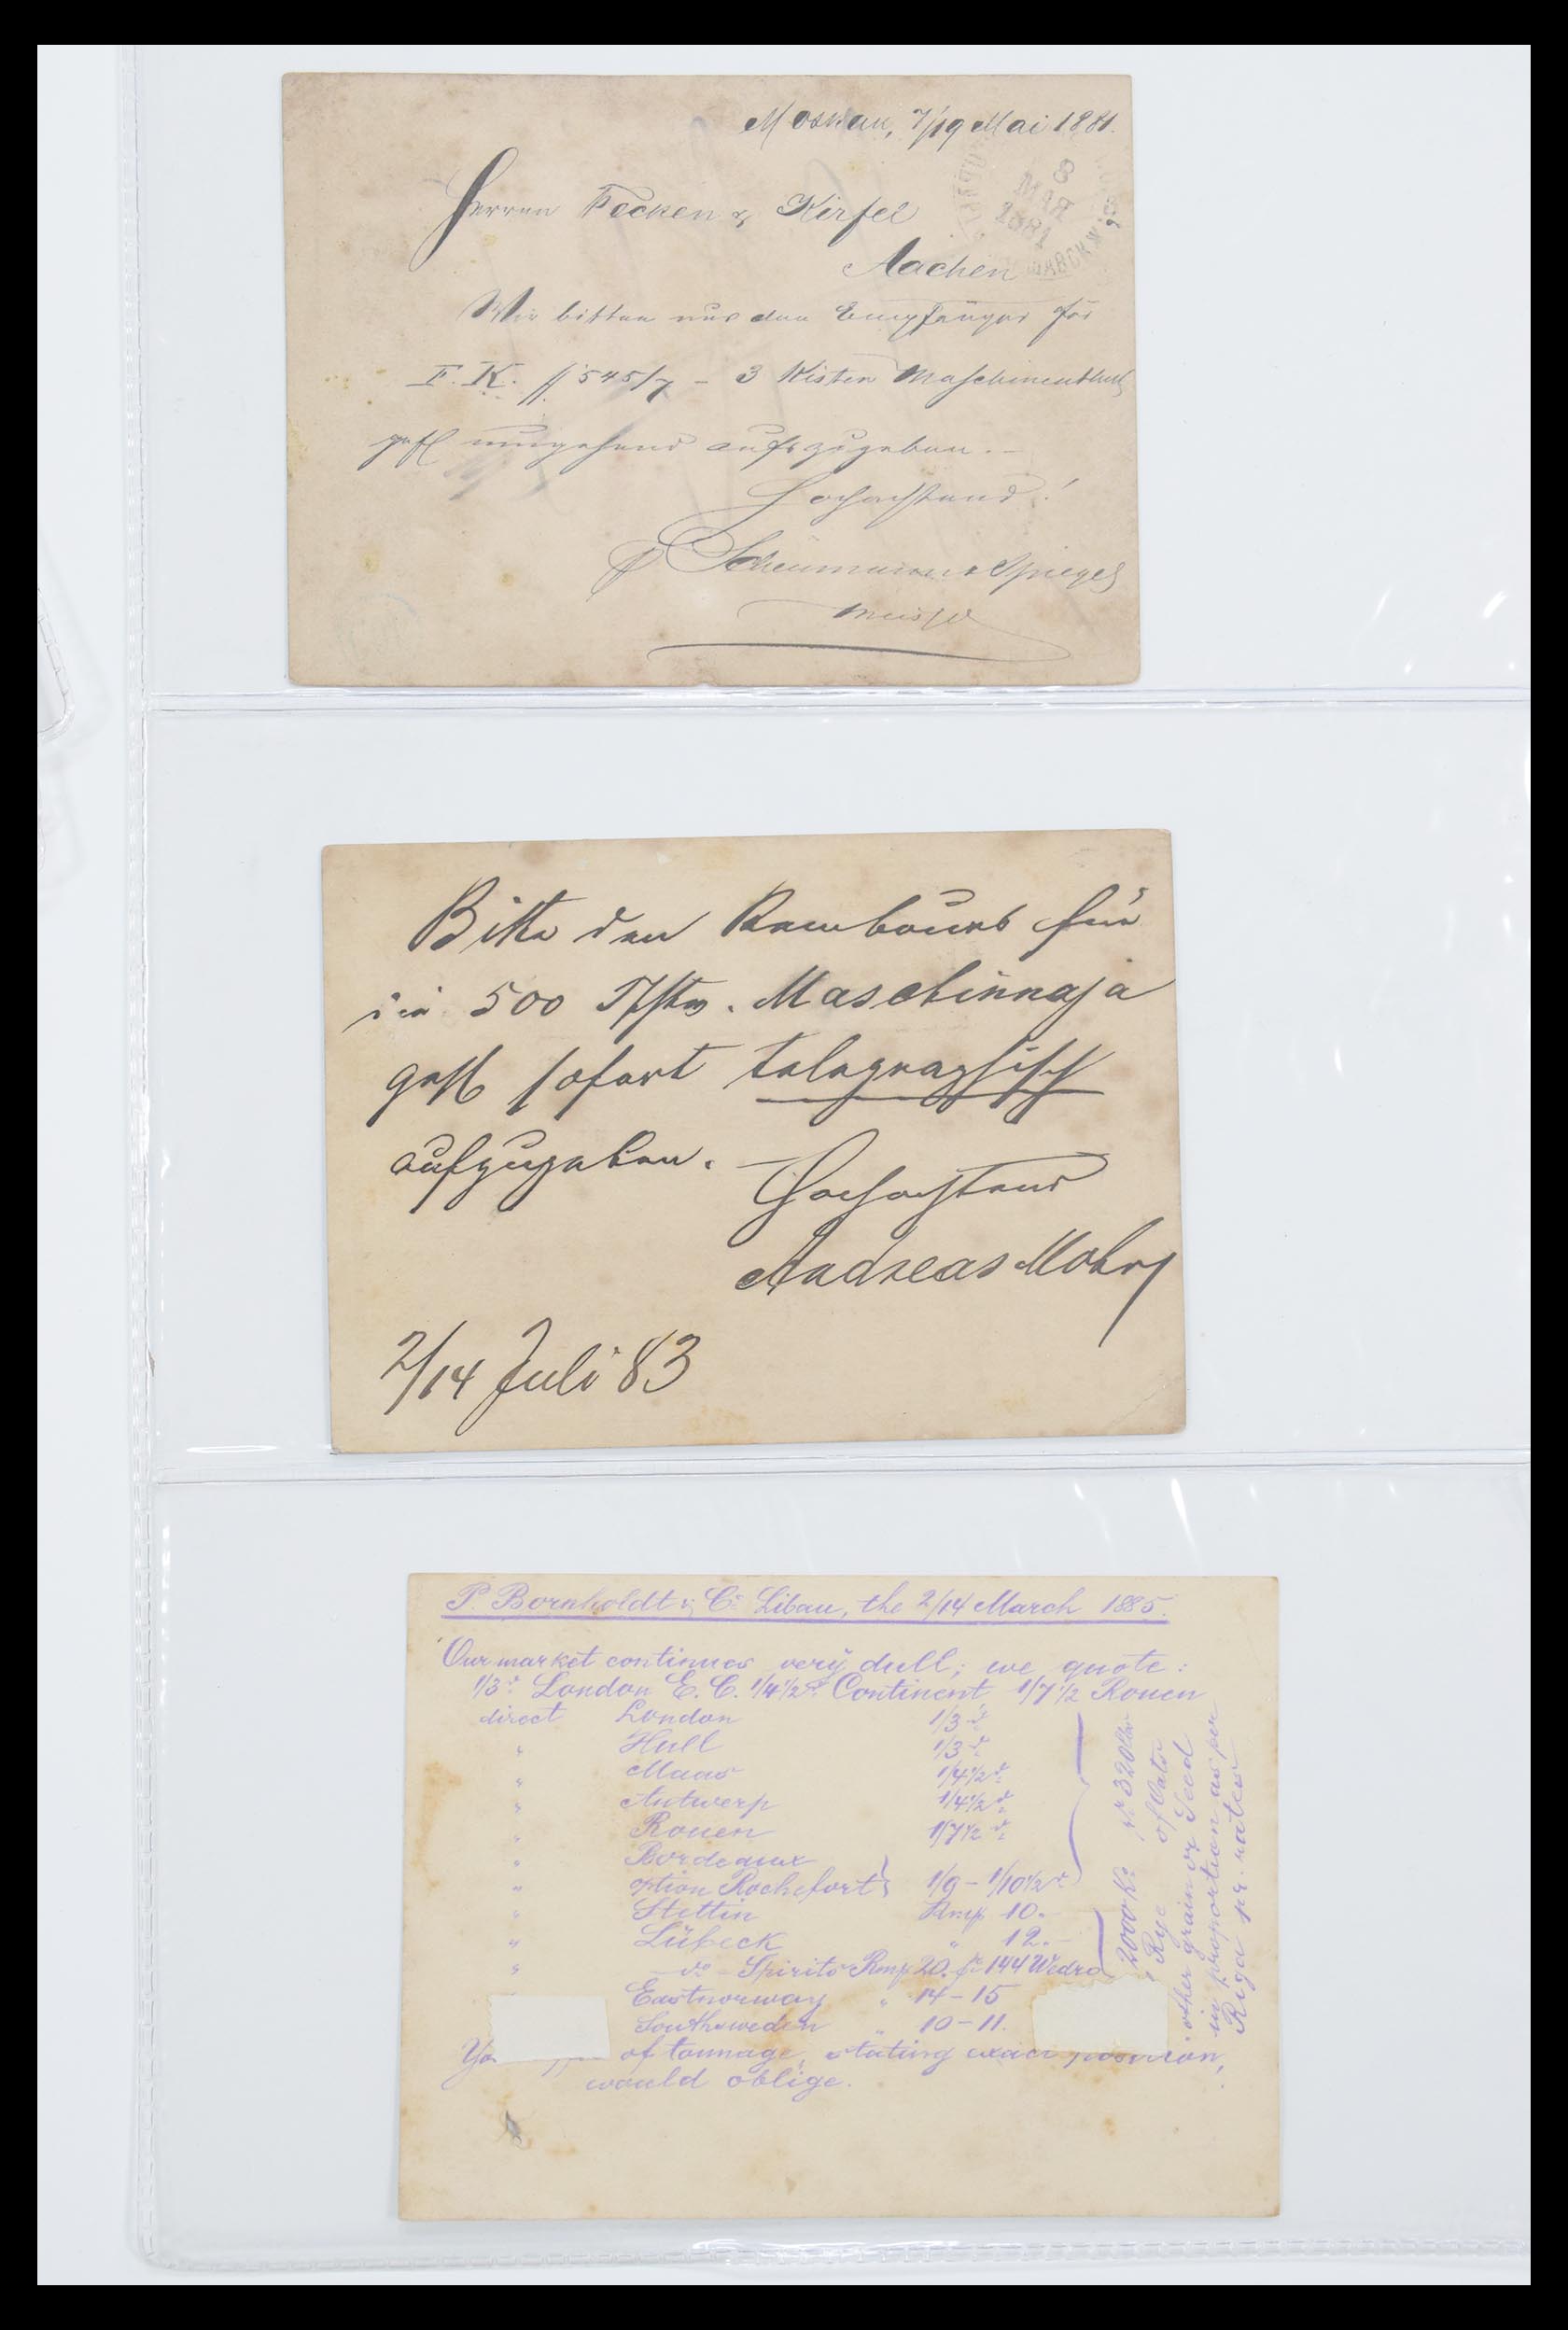 Moskau, 7/19 Mai 1881.
8
МАЯ
1881
Herren Fecken & Kirfel
Aachen
Wir bitten uns den Empfänger für
F. K. # 545/7 – 3 Kisten Maschinentheile
gefl umgehend aufzugeben. –
Hochachtend!
Scheumann & Spiegel
Bitte den Rembours für
die 500 Maschinnaja
gefl sofort telegraphisch
aufzugeben. –
Hochachtend
Andreas Mohr
2/14 Juli 83
P. Bornholdt & Co. Libau, the 2/14 March 1885.
Our market continues very dull; we quote:
1/3d. London E. C. 1/4 1/2d. Continent 1/7 1/2 Rouen
direct London 1/3 d
" Hull 1/3 d
" Maas 1/4 1/2 d
" Antwerp 1/4 1/2 d
" Rouen 1/7 1/2 d
" Bordeaux
" option Rochefort } 1/9 – 1/10 1/2 d
" Stettin Rmp. 10.–
" Lübeck " 12.–
" – do – Spirits Rmp. 20. pr 144 Wedro
Eastnorway " 14 – 15
Southsweden " 10 – 11.
of tonnage, stating exact position,
would oblige.
pr 320 lbs of Oats
2000 Ko. Rye
other grain or Seed
in proportion as per
Riga pr. rates